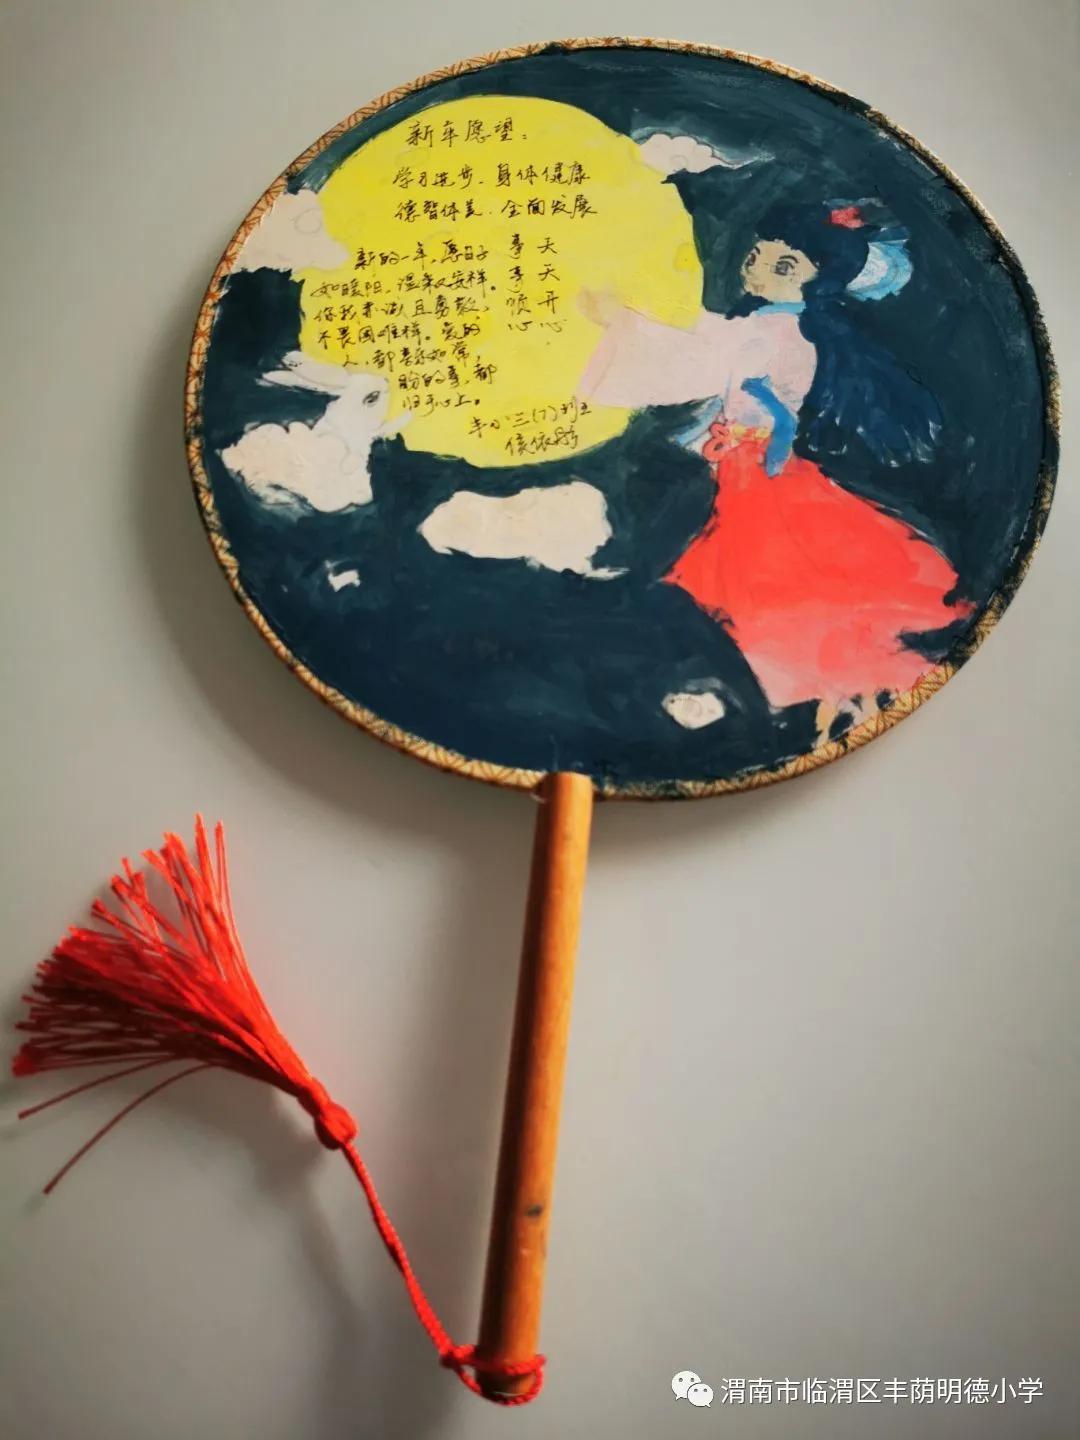 新年愿望：
学习进步、身体健康
德智体美、全面发展
新的一年，愿日子
如暖阳，温柔又安祥。
你我赤诚且勇敢，
不畏困难样。爱的
人，都喜乐如常，
盼的事，都
归于心上。
事事顺心
天天开心
丰小三(7)班
侯依彤
渭南市临渭区丰荫明德小学